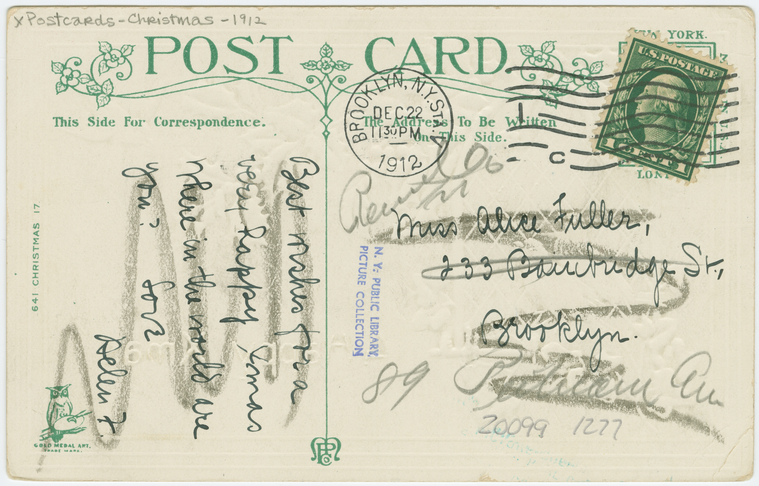 x Postcards-Christmas-1912
POST CARD
NEW YORK.
This Side For Correspondence.
The Address To Be Written
On This Side.
BROOKLYN, N.Y. STA.
DEC 22
11 30 PM
1912
C
U.S. POSTAGE
LON
Best wishes for a
very happy Xmas
where in the world are
you? Love
Helen F.
Miss Alice Fuller,
233 Bainbridge St.,
Brooklyn.
89 Putnam Av
N.Y. PUBLIC LIBRARY
PICTURE COLLECTION
20099 1277
641 CHRISTMAS 17
GOLD MEDAL ART.
TRADE MARK.